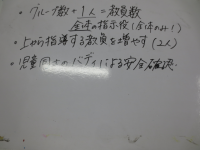 ・グループ数+1人=教員数
全体の指示役(全体のみ!)
・上から指導する教員を増やす(2人)
・児童同士のバディによる安全確認